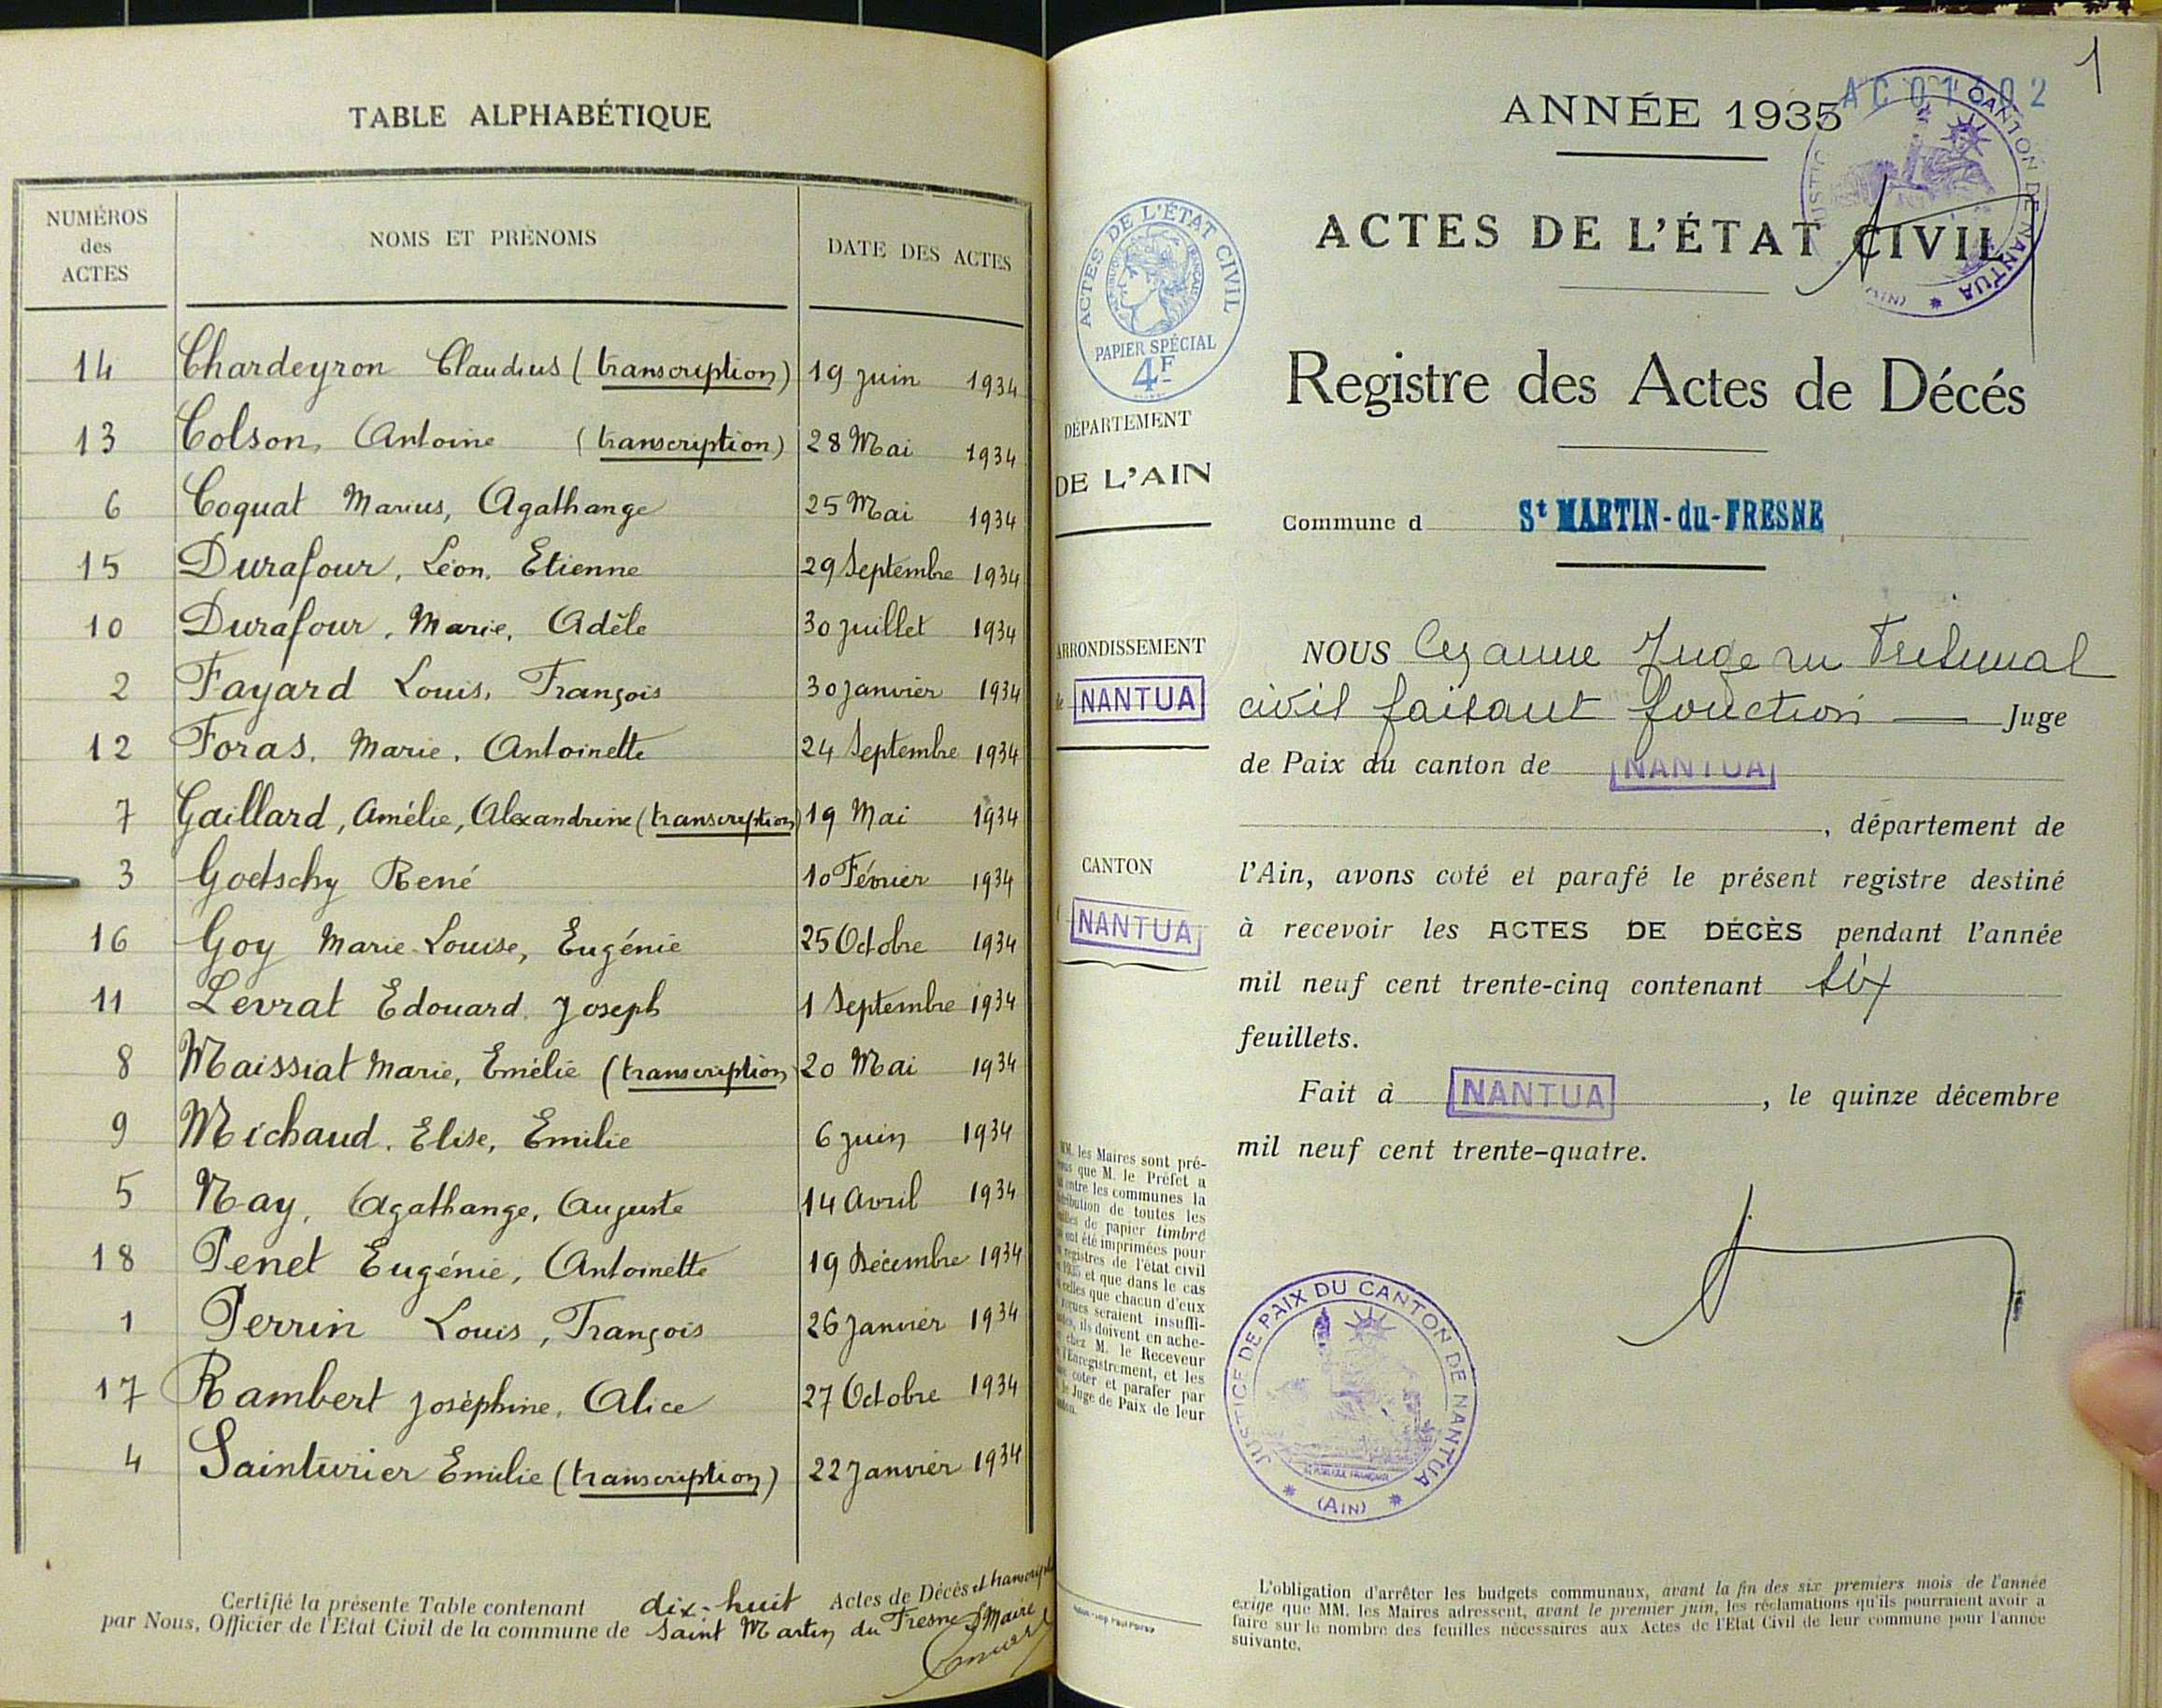 TABLE ALPHABÉTIQUE
NUMÉROS des ACTES
NOMS ET PRÉNOMS
DATE DES ACTES
14 Chardeyron Claudius (transcription) 19 juin 1934
13 Colson, Antoine (transcription) 28 Mai 1934
6 Coquat Marius, Agathange 25 Mai 1934
15 Durafour, Léon, Etienne 29 Septembre 1934
10 Durafour, Marie, Adèle 30 juillet 1934
2 Fayard Louis, François 30 janvier 1934
12 Foras, Marie, Antoinette 24 Septembre 1934
7 Gaillard, Amélie, Alexandrine (transcription) 19 Mai 1934
3 Goetschy René 10 Février 1934
16 Goy Marie-Louise, Eugénie 25 Octobre 1934
11 Levrat Edouard, Joseph 1 Septembre 1934
8 Maissiat Marie, Emélie (transcription 20 Mai 1934
9 Michaud, Elise, Emilie 6 juin 1934
5 Nay, Agathange, Auguste 14 Avril 1934
18 Penet Eugénie, Antoinette 19 Décembre 1934
1 Perrin Louis, François 26 Janvier 1934
17 Rambert Joséphine, Alice 27 Octobre 1934
4 Sainturier Emilie (transcription) 22 Janvier 1934
Certifié la présente Table contenant dix-huit Actes de Décès et
par Nous, Officier de l'Etat Civil de la commune de Saint Martin du Fresne Maire
1
AC 01 02
ANNÉE 1935
CANTON DE NANTUA
(AIN)
ACTES DE L'ÉTAT CIVIL
ACTES DE L'ÉTAT CIVIL
PAPIER SPÉCIAL
4F
Registre des Actes de Décés
DÉPARTEMENT
DE L'AIN
Commune d St MARTIN-du-FRESNE
ARRONDISSEMENT
de NANTUA
CANTON
NANTUA
NOUS Cezanne Juge au Tribunal
civil faisant fonction — Juge
de Paix du canton de NANTUA
, département de
l'Ain, avons coté et parafé le présent registre destiné
à recevoir les ACTES DE DÉCÈS pendant l'année
mil neuf cent trente-cinq contenant six
feuillets.
Fait à NANTUA, le quinze décembre
mil neuf cent trente-quatre.
MM. les Maires sont pré-
que M. le Préfet a
entre les communes la
de toutes les
de papier timbré
ont été imprimées pour
registres de l'état civil
1935 et que dans le cas
celles que chacun d'eux
reçues seraient insuffi-
ils doivent en ache-
chez M. le Receveur
l'Enregistrement, et les
coter et parafer par
le Juge de Paix de leur
JUSTICE DE PAIX DU CANTON DE NANTUA
(AIN)
L'obligation d'arrêter les budgets communaux, avant la fin des six premiers mois de l'année
exige que MM. les Maires adressent, avant le premier juin, les réclamations qu'ils pourraient avoir a
faire sur le nombre des feuilles nécessaires aux Actes de l'Etat Civil de leur commune pour l'année
suivante.